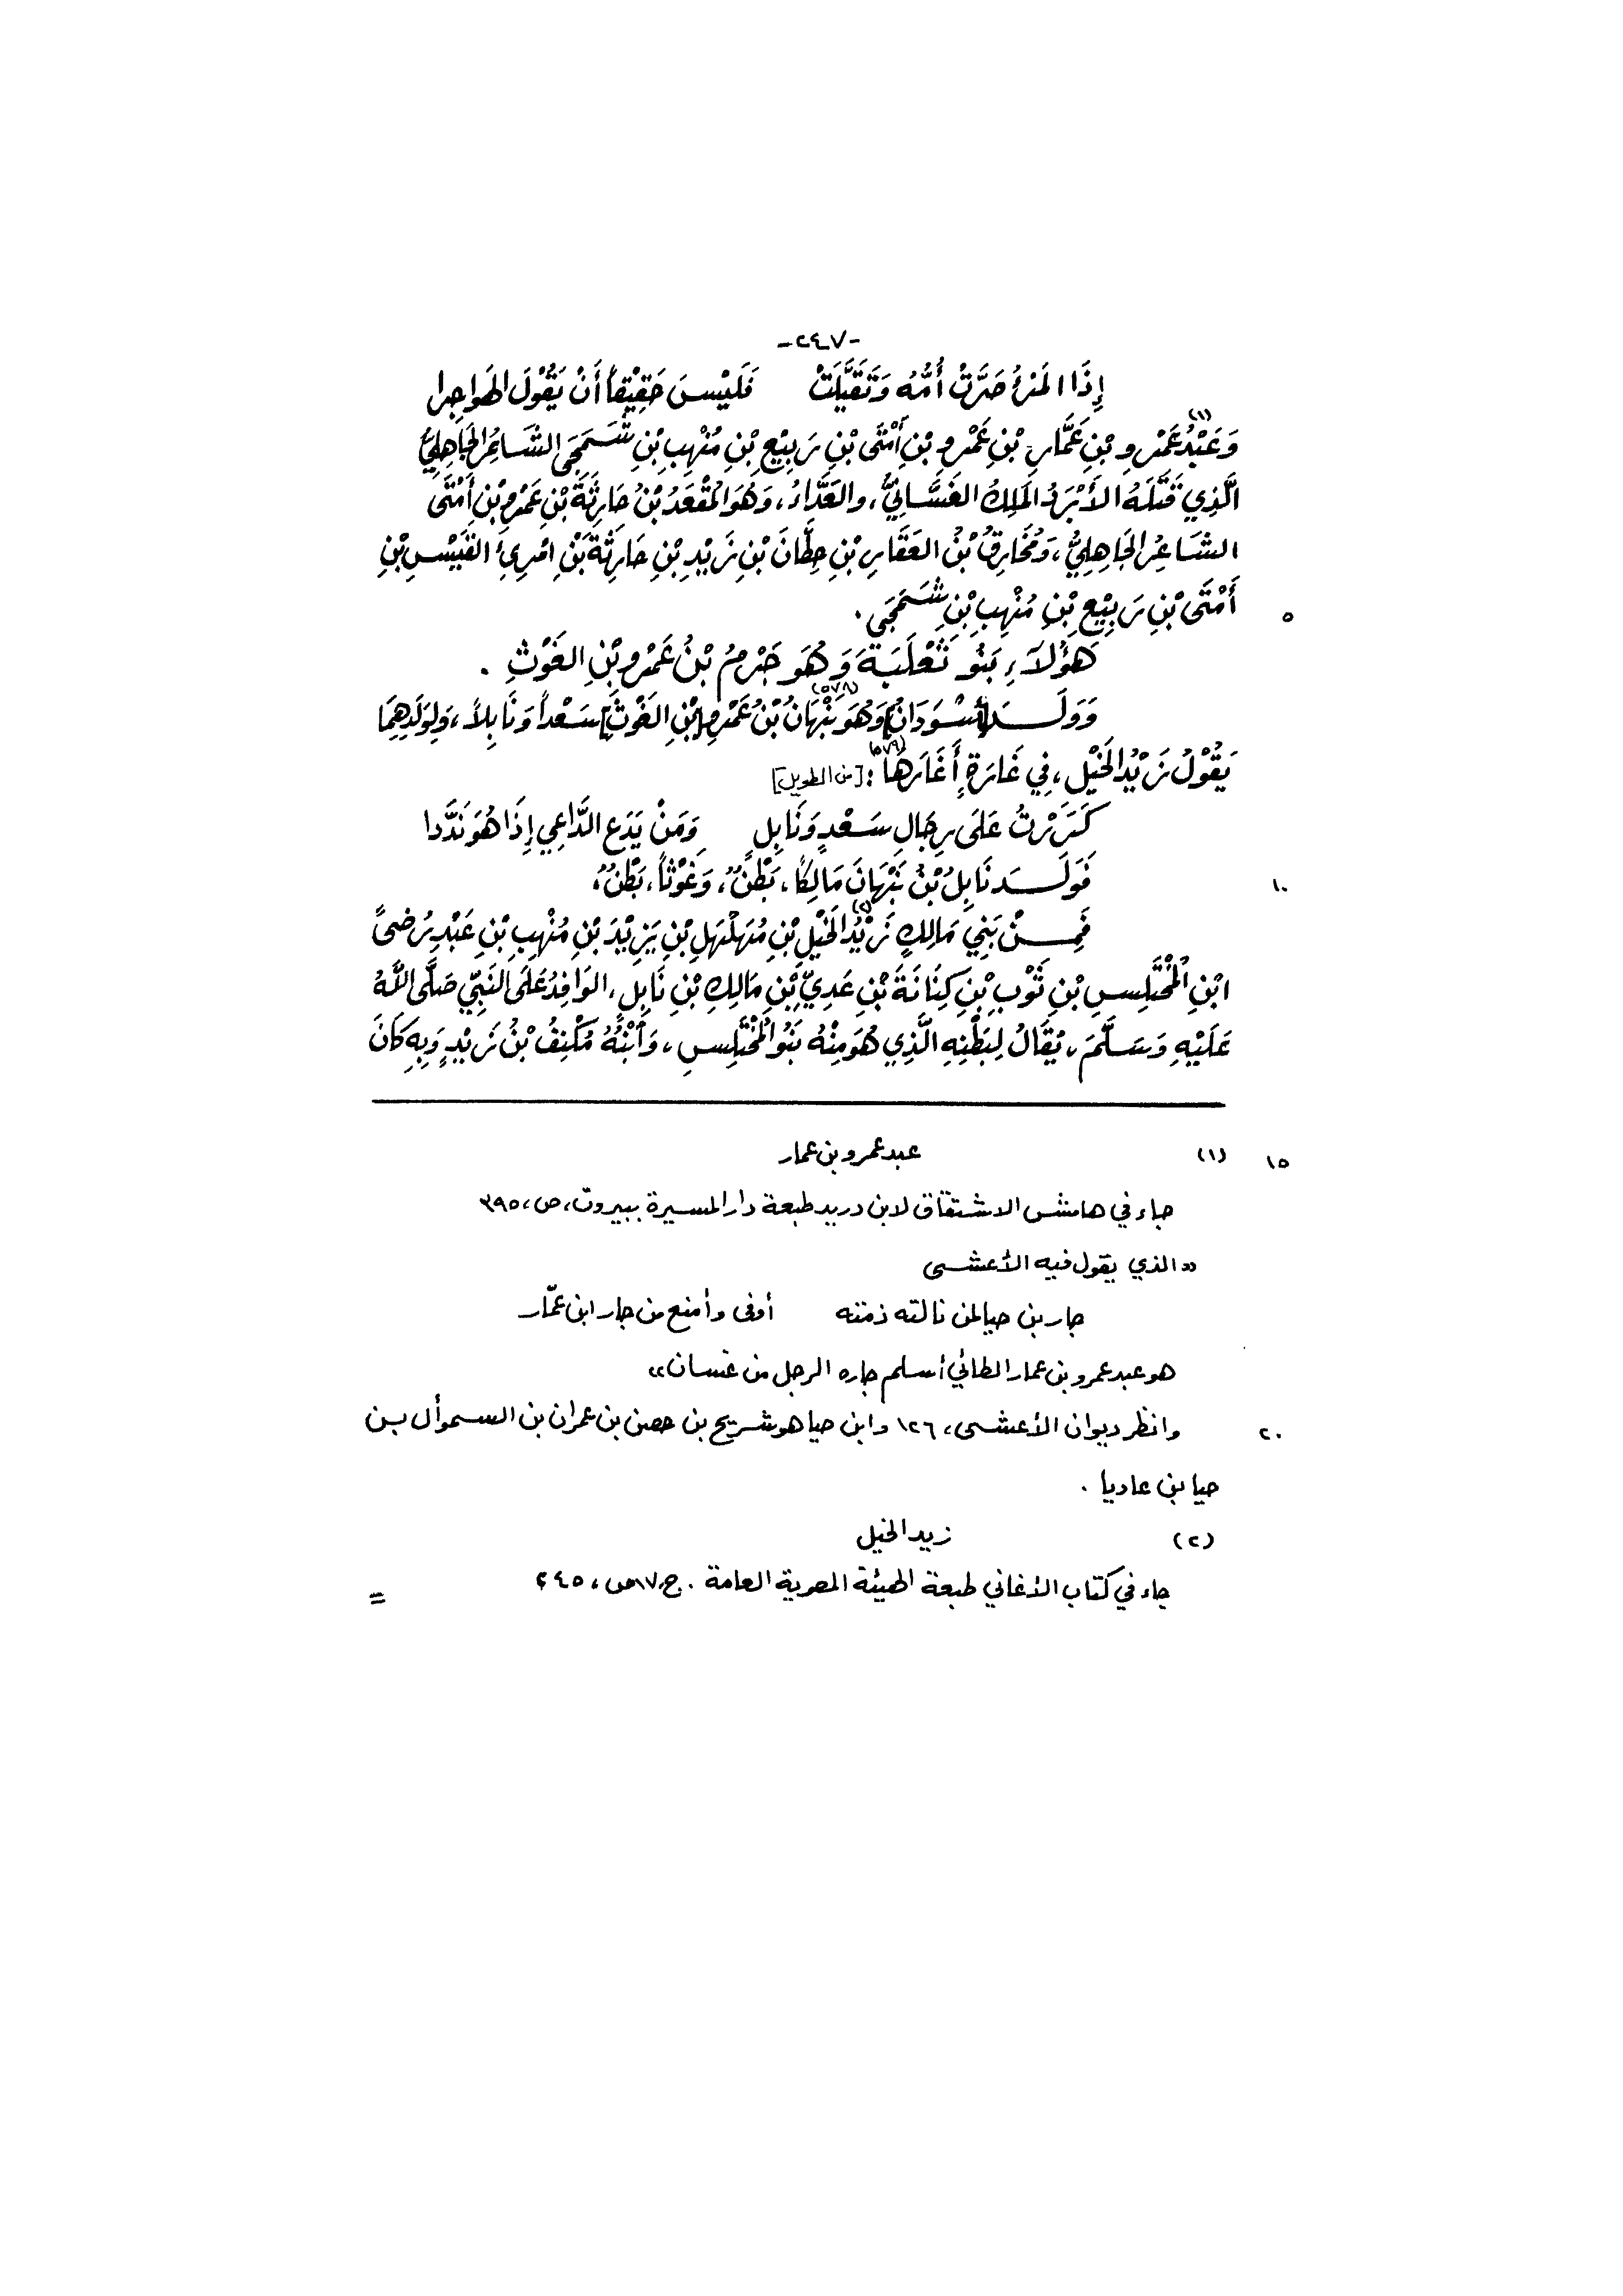 -٢٤٧-
إِذَا المَرْءُ صَرَّتْ أُمُّهُ وَتَقَيَّلَتْ فَلَيْسَ حَقِيْقاً أَنْ يَقُوْلَ الهَواجِرا
وَعَبْدُ(١) عَمْرِو بْنِ عَمَّارِ بْنِ عَمْرِو بْنِ أَمْتَى بْنِ رَبِيْعِ بْنِ مُنْهِبِ بْنِ شَمَجَى الشَّاعِرُ الجَاهِلِيُّ
الَّذِي قَتَلَهُ الأَبْرَدُ المَلِكُ الغَسَّانِيُّ، والعَدَّاءُ، وَهُوَ المُقْعَدُ بْنُ حَارِثَةَ بْنِ عَمْرِو بْنِ أَمْتَى
الشَّاعِرُ الجَاهِلِيُّ، وَمُخَارِقُ بْنُ العَقَارِ بْنِ حِطَّانَ بْنِ زَيْدِ بْنِ حَارِثَةَ بْنِ امْرِئِ القَيْسِ بْنِ
أَمْتَى بْنِ رَبِيْعِ بْنِ مُنْهِبِ بْنِ شَمَجَى.
٥
هَؤُلاَءِ بَنُو ثَعْلَبَةَ وَهُوَ جَرْمُ بْنُ عَمْرِو بْنِ الغَوْثِ.
وَوَلَدَ [أَسْوَدَانُ] وَهُوَ نَبْهَانُ(٥٧٨) بْنُ عَمْرِو [بْنِ الغَوْثِ] سَعْداً وَنَابِلاً، وَلِوَلَدِهِمَا
يَقُوْلُ زَيْدُ الخَيْلِ، فِي غَارَةٍ أَغَارَهَا(٥٧٩): [من الطويل]
كَرَرْتُ عَلَى رِجَالِ سَعْدٍ وَنَابِلٍ وَمَنْ يَدَعِ الدَّاعِي إِذَا هُوَ نَدَّدا
فَوَلَدَ نَابِلُ بْنُ نَبْهَانَ مَالِكاً، بَطْنٌ، وَغَوْثاً، بَطْنٌ،
١٠
فَمِنْ بَنِي مَالِكٍ زَيْدُ(٢) الخَيْلِ بْنِ مُهَلْهِلِ بْنِ يَزِيْدَ بْنِ مُنْهِبِ بْنِ عَبْدِ رُضىً
ابْنِ المُخْتَلِسِ بْنِ ثَوْبِ بْنِ كِنَانَةَ بْنِ عَدِيِّ بْنِ مَالِكِ بْنِ نَابِلٍ، الوَافِدُ عَلَى النَّبِيِّ صَلَّى اللَّهُ
عَلَيْهِ وَسَلَّمَ، يُقَالُ لِبَطْنِهِ الَّذِي هُوَ مِنْهُ بَنُو المُخْتَلِسِ، وَٱبْنُهُ مُكْنِفُ بْنُ زَيْدٍ وَبِهِ كَانَ
(١) عبد عمرو بن عمار
١٥
جاء في هامش الاشتقاق لابن دريد طبعة دار المسيرة ببيروت، ص، ٣٩٥
« الذي يقول فيه الأعشى
جار بن حيا لمن نالته ذمته أوفى وأمنع من جار ابن عمّار
هو عبد عمرو بن عمار الطائي أسلم جاره الرجل من غسان»
وانظر ديوان الأعشى، ١٢٦ وابن حيا هو شريح بن حصن بن عمران بن السموأل بن
٢٠
حيا بن عاديا .
(٢) زيد الخيل
جاء في كتاب الأغاني طبعة الهيئة المصرية العامة . ج،١٧ ص، ٢٤٥
=